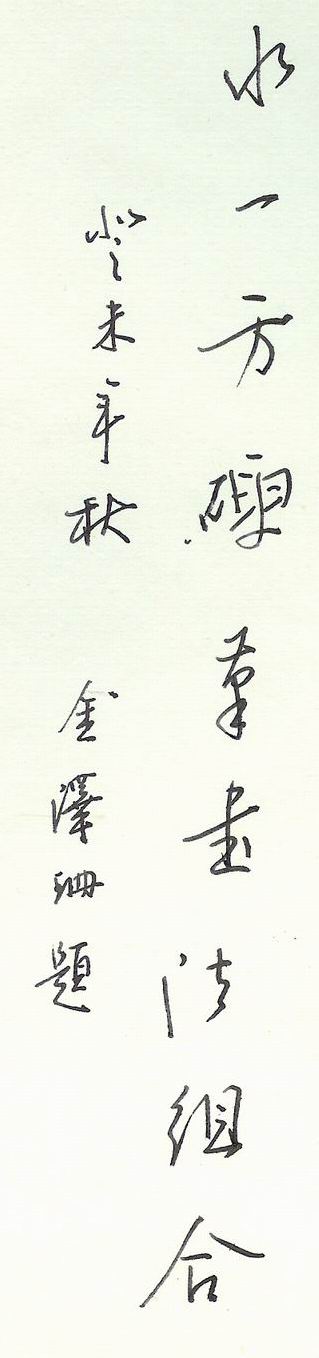 水一方硬筆書法組合
癸未年秋 金澤珊題